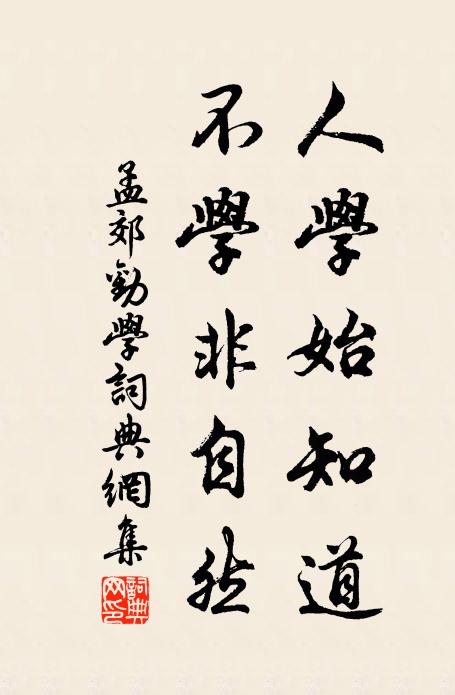 人學始知道
不學非自然
孟郊勸學詞典網集
詞典網印